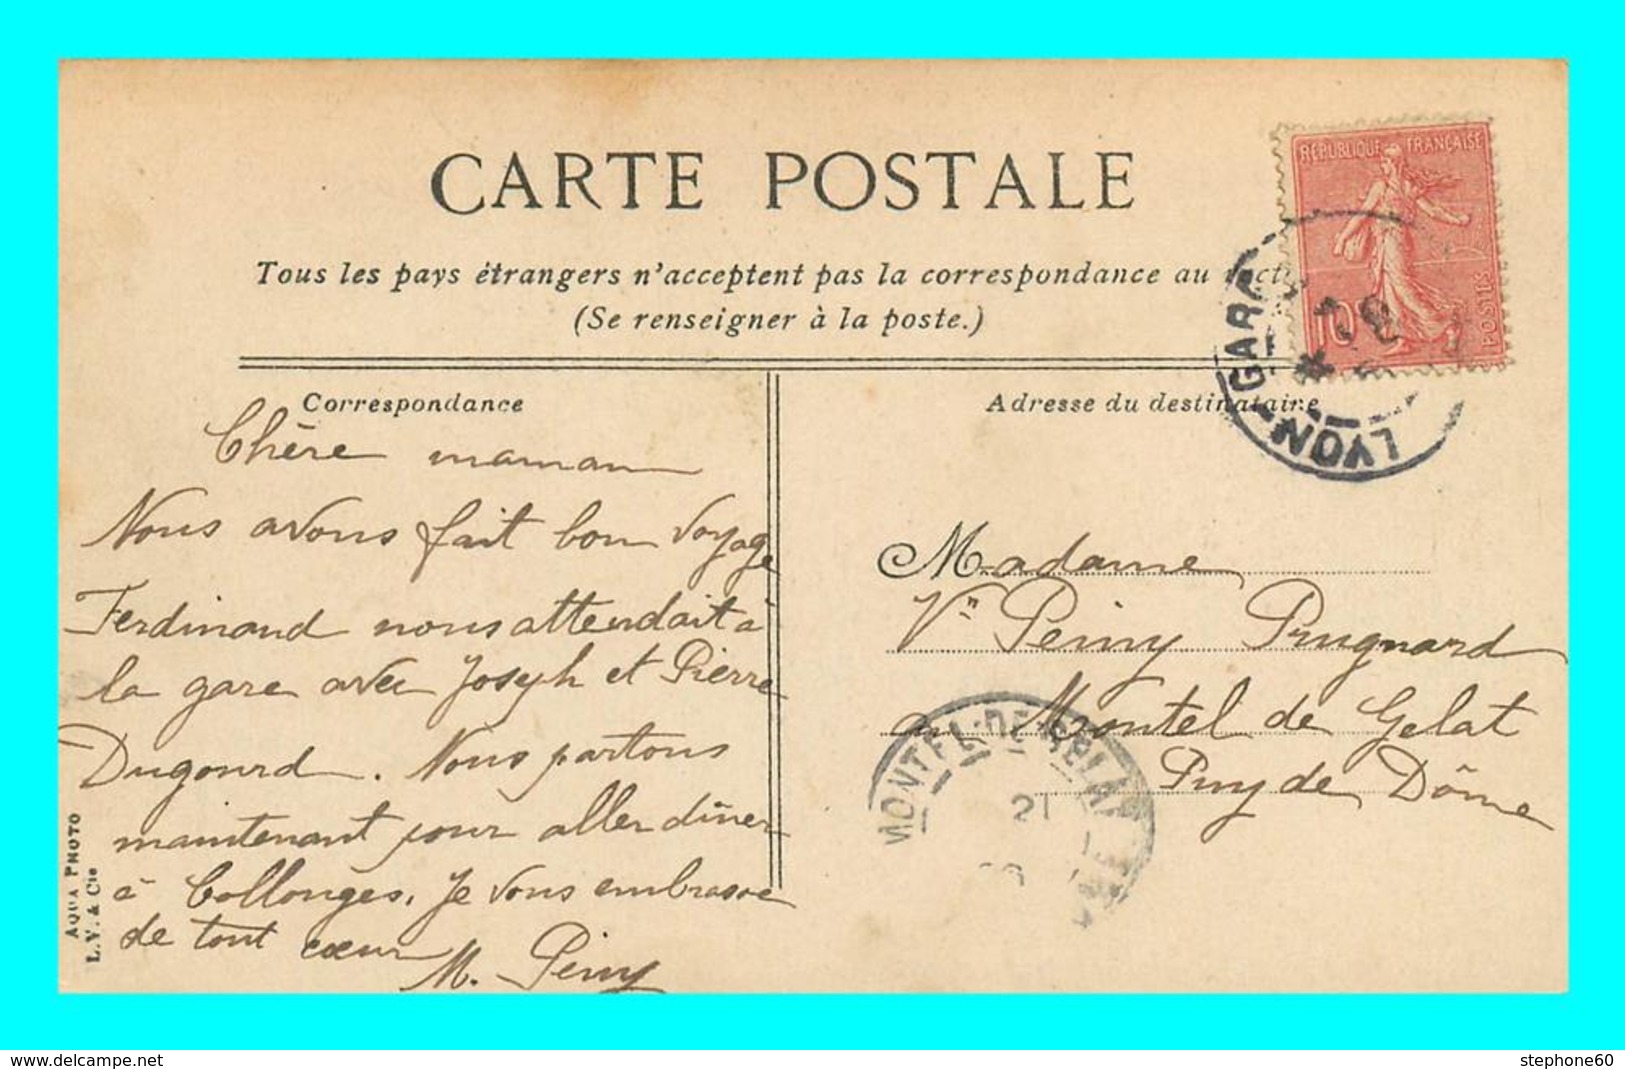 CARTE POSTALE
Tous les pays étrangers n'acceptent pas la correspondance au
(Se renseigner à la poste.)
RÉPUBLIQUE FRANÇAISE
10
POSTES
LYON - GARE
Correspondance
Chère maman
Nous avons fait bon voyage
Ferdinand nous attendait à
la gare avec Joseph et Pierre
Dugourd. Nous partons
maintenant pour aller dîner
à Collonges. Je vous embrasse
de tout cœur
M. Peiny
Adresse du destinataire
Madame
Vve Peiny Prugnard
au Montel de Gelat
Puy de Dôme
MONTEL-DE-GELAT
21
AQUA PHOTO
L.V. & Cie
www.delcampe.net
stephone60